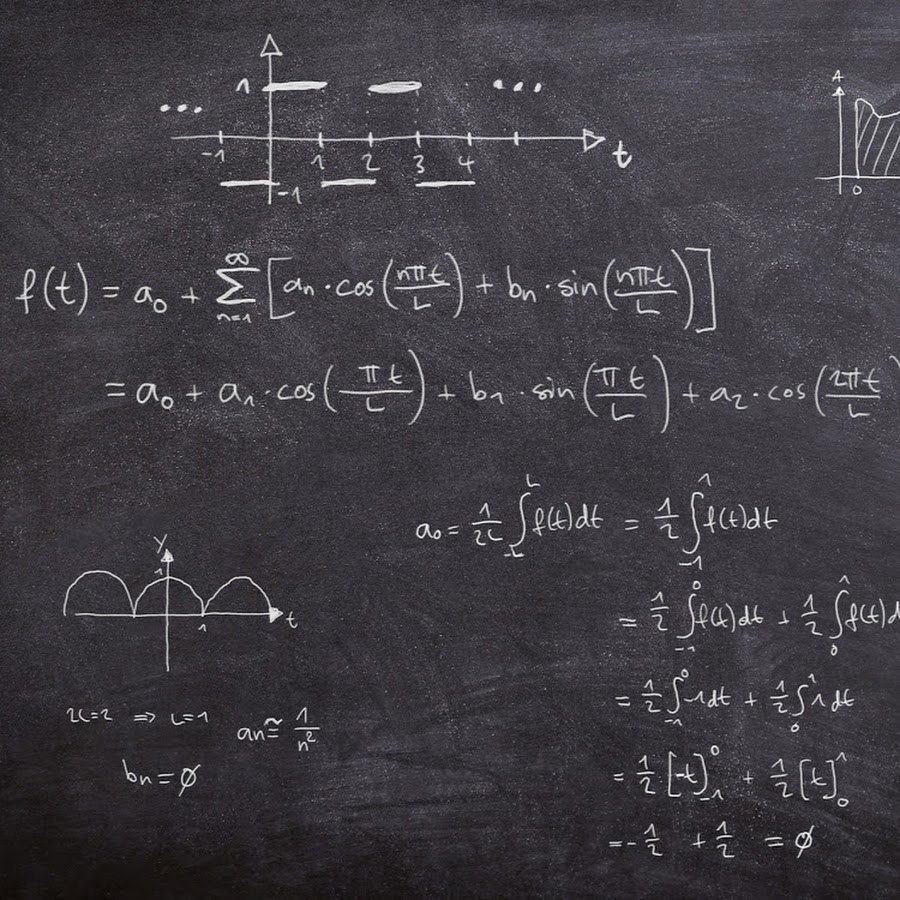 1
... ...
-1 1 2 3 4 t
-1
A
0
f(t) = a₀ + ∑ₙ₌₁^∞ [aₙ·cos(nπt/L) + bₙ·sin(nπt/L)]
= a₀ + a₁·cos(πt/L) + b₁·sin(πt/L) + a₂·cos(2πt/L)
a₀ = 1/2L ∫₋L^L f(t)dt = 1/2 ∫₋₁^1 f(t)dt
= 1/2 ∫₋₁^0 f(t)dt + 1/2 ∫₀^1 f(t)d
= 1/2 ∫₋₁^0 -1dt + 1/2 ∫₀^1 1dt
= 1/2 [-t]₋₁^0 + 1/2 [t]₀^1
= -1/2 + 1/2 = ∅
y
1
1 t
2L=2 ⇒ L=1 aₙ ≅ 1/n²
bₙ = ∅